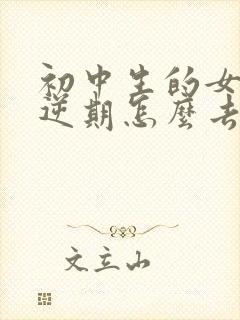 初中生的女
逆期怎麼去
文立山